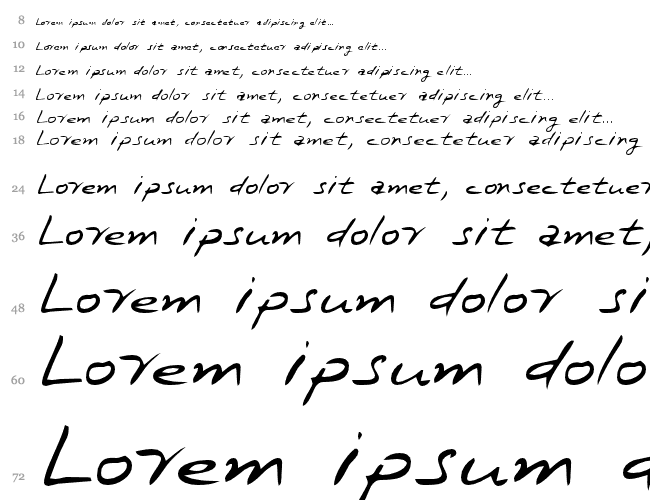 8 Lorem ipsum dolor sit amet, consectetuer adipiscing elit...
10 Lorem ipsum dolor sit amet, consectetuer adipiscing elit...
12 Lorem ipsum dolor sit amet, consectetuer adipiscing elit...
14 Lorem ipsum dolor sit amet, consectetuer adipiscing elit...
16 Lorem ipsum dolor sit amet, consectetuer adipiscing elit...
18 Lorem ipsum dolor sit amet, consectetuer adipiscing
24 Lorem ipsum dolor sit amet, consectetuer
36 Lorem ipsum dolor sit amet,
48 Lorem ipsum dolor si
60 Lorem ipsum dolo
72 Lorem ipsum d